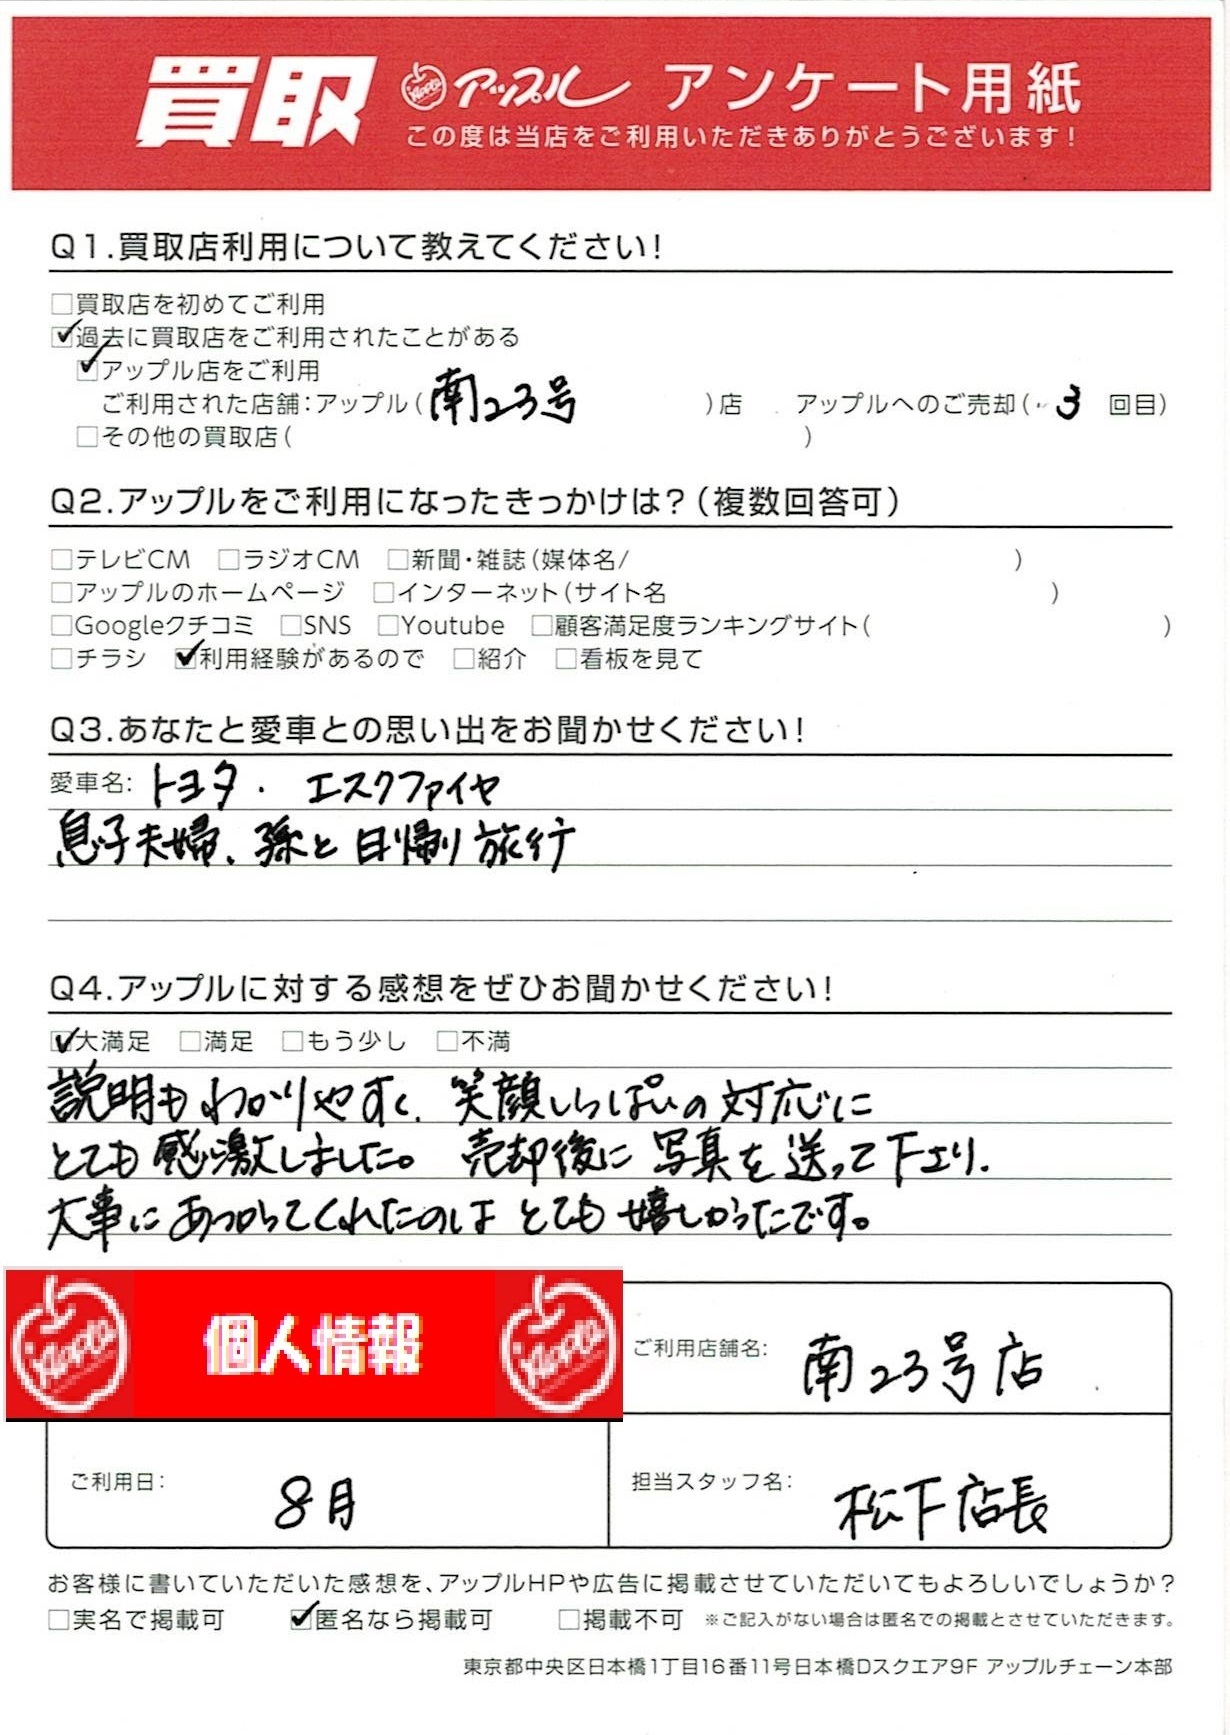 買取 Apple アップル アンケート用紙
この度は当店をご利用いただきありがとうございます!
Q1.買取店利用について教えてください!
□買取店を初めてご利用
☑過去に買取店をご利用されたことがある
☑アップル店をご利用
ご利用された店舗:アップル(南23号)店 アップルへのご売却(3回目)
□その他の買取店( )
Q2.アップルをご利用になったきっかけは?(複数回答可)
□テレビCM □ラジオCM □新聞・雑誌(媒体名/ )
□アップルのホームページ □インターネット(サイト名 )
□Googleクチコミ □SNS □Youtube □顧客満足度ランキングサイト( )
□チラシ ☑利用経験があるので □紹介 □看板を見て
Q3.あなたと愛車との思い出をお聞かせください!
愛車名:トヨタ. エスクファイヤ
息子夫婦、孫と日帰り旅行
Q4.アップルに対する感想をぜひお聞かせください!
☑大満足 □満足 □もう少し □不満
説明もわかりやすく、笑顔いっぱいの対応に
とても感激しました。売却後に写真を送って下さり、
大事にあつかってくれたのはとても嬉しかったです。
Apple 個人情報 Apple
ご利用店舗名: 南23号店
ご利用日: 8月
担当スタッフ名: 松下店長
お客様に書いていただいた感想を、アップルHPや広告に掲載させていただいてもよろしいでしょうか?
□実名で掲載可 ☑匿名なら掲載可 □掲載不可 ※ご記入がない場合は匿名での掲載とさせていただきます。
東京都中央区日本橋1丁目16番11号日本橋Dスクエア9F アップルチェーン本部